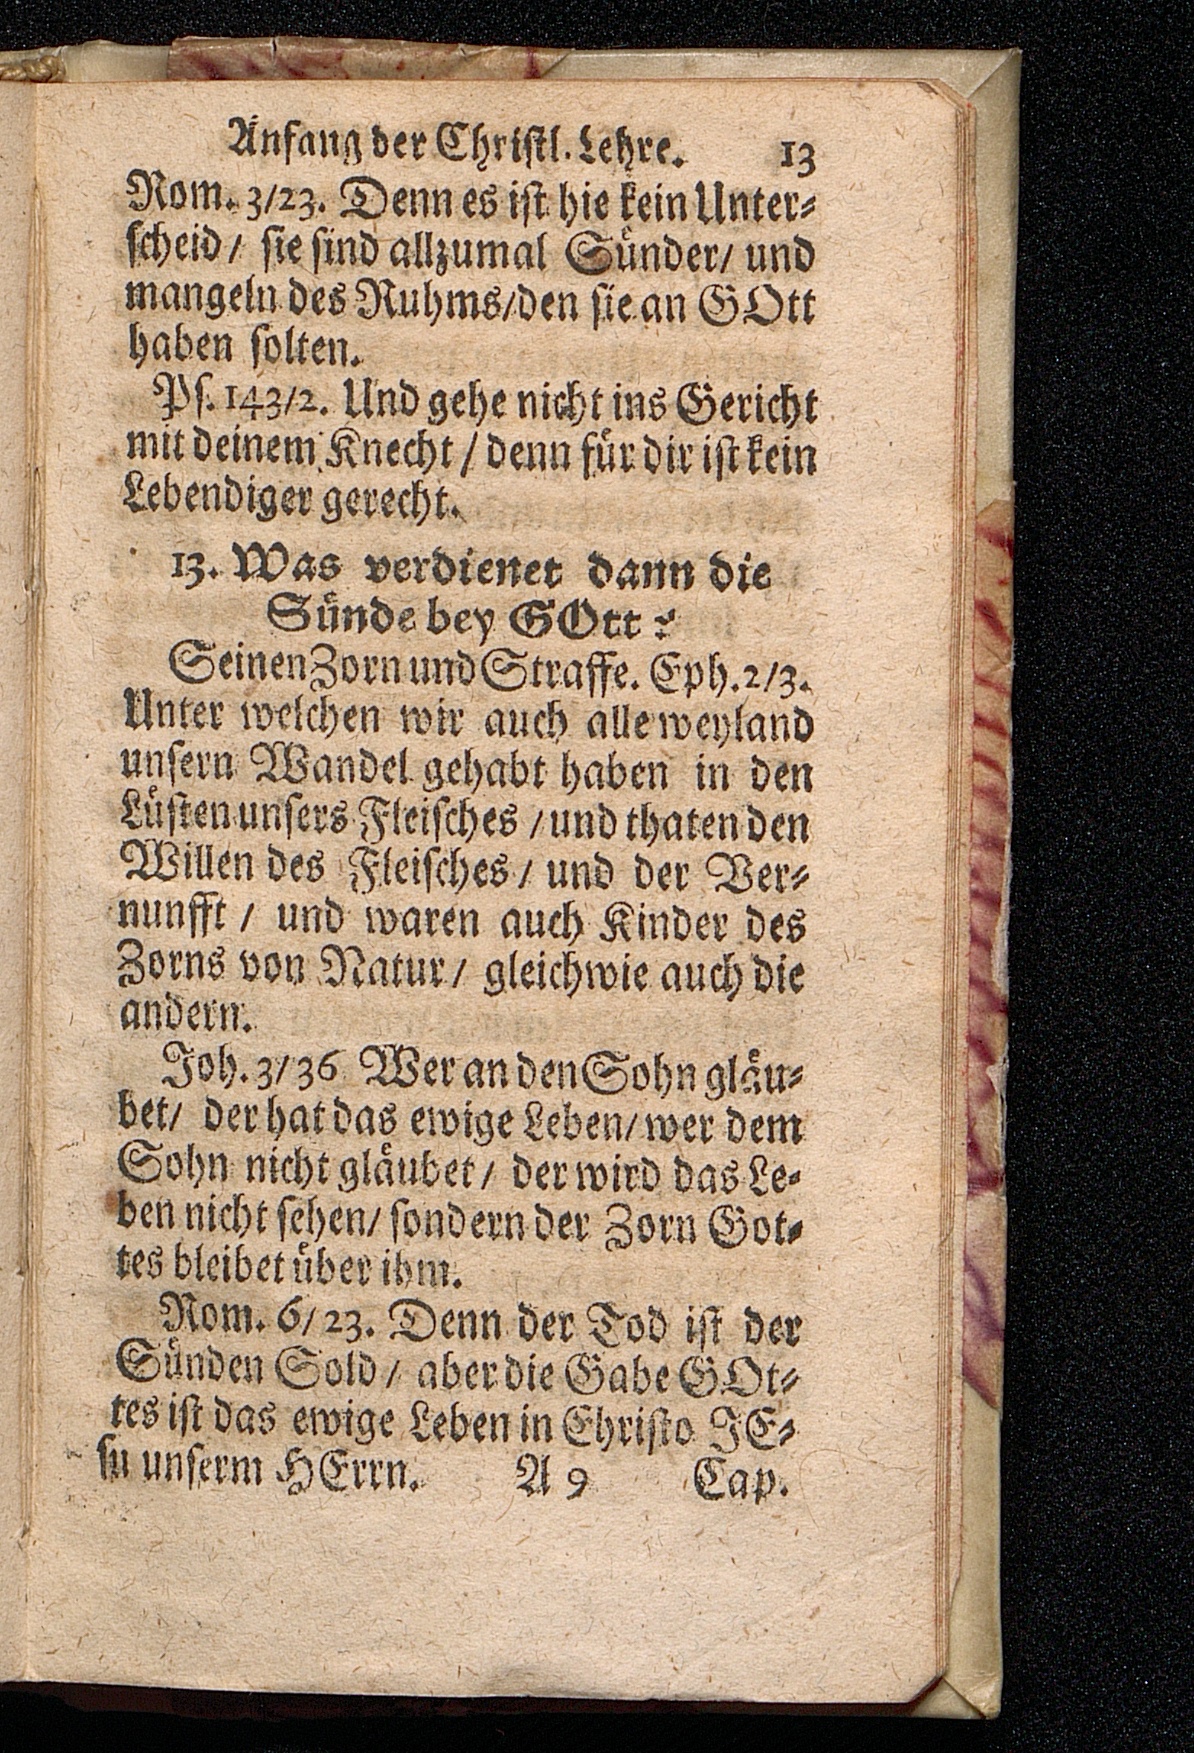 Anfang der Christl. Lehre. 13
Rom. 3/23. Denn es ist hie kein Unter-
scheid/ sie sind allzumal Sünder/ und
mangeln des Ruhms/den sie an GOtt
haben solten.
Ps. 143/2. Und gehe nicht ins Gericht
mit deinem Knecht / denn für dir ist kein
Lebendiger gerecht.
13. Was verdienet dann die
Sünde bey GOtt?
Seinen Zorn und Straffe. Eph.2/3.
Unter welchen wir auch alle weyland
unsern Wandel gehabt haben in den
Lüsten unsers Fleisches /und thaten den
Willen des Fleisches/ und der Ver-
nunfft / und waren auch Kinder des
Zorns von Natur/ gleichwie auch die
andern.
Joh. 3/36 Wer an den Sohn gläu-
bet/ der hat das ewige Leben/ wer dem
Sohn nicht gläubet/ der wird das Le-
ben nicht sehen/ sondern der Zorn Got-
tes bleibet über ihm.
Rom. 6/23. Denn der Tod ist der
Sünden Sold/ aber die Gabe GOt-
tes ist das ewige Leben in Christo JE-
su unserm HErrn. A 9 Cap.